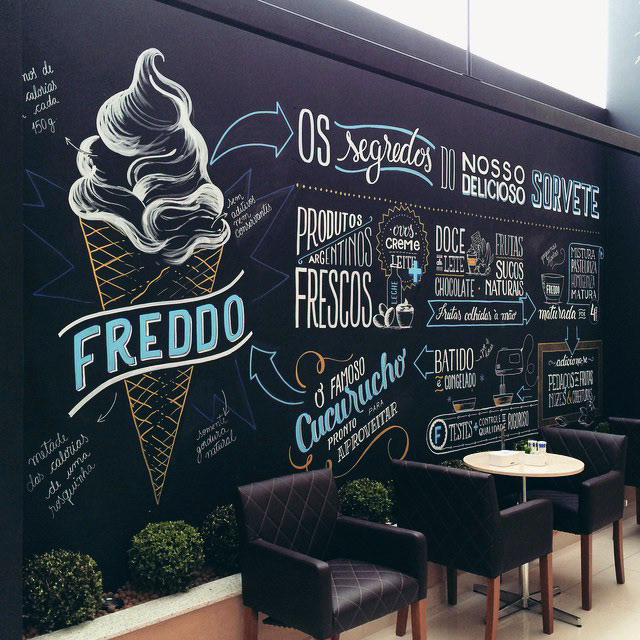 nos de
calorias
cada
150g
OS segredos DO NOSSO DELICIOSO SORVETE
sem
aditivos
nem
conservantes
PRODUTOS
ARGENTINOS
FRESCOS
ovos
CREME
LEITE
+
DOCE
DE LEITE
CHOCOLATE
FRUTAS
SUCOS
NATURAIS
Frutas colhidas à mão
MISTURA
PASTEURIZA
HOMOGENEIZA
MATURA
FREDDO
maturada POR 4
FREDDO
O FAMOSO
Cucurucho
PRONTO PARA
APROVEITAR
BATIDO
E CONGELADO
adiciona-se
PEDAÇOS DE FRUTAS
F TESTES + CONTROLE DE QUALIDADE RIGOROSO
somente
gordura
natural
metade
das calorias
de uma
rosquinha